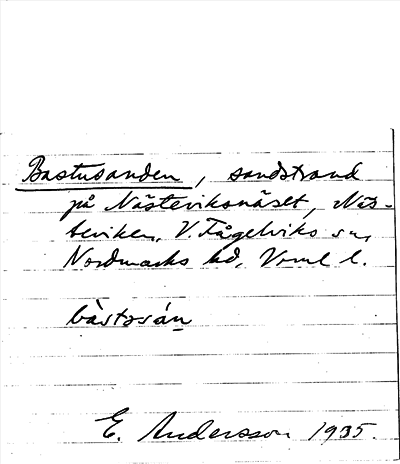 Bastusanden, sandstrand
på Nästeviksnäset, Näs-
teviken, V. Fågelviks sn,
Nordmarks hd, Verml l.
bàstosán
E. Andersson 1935.